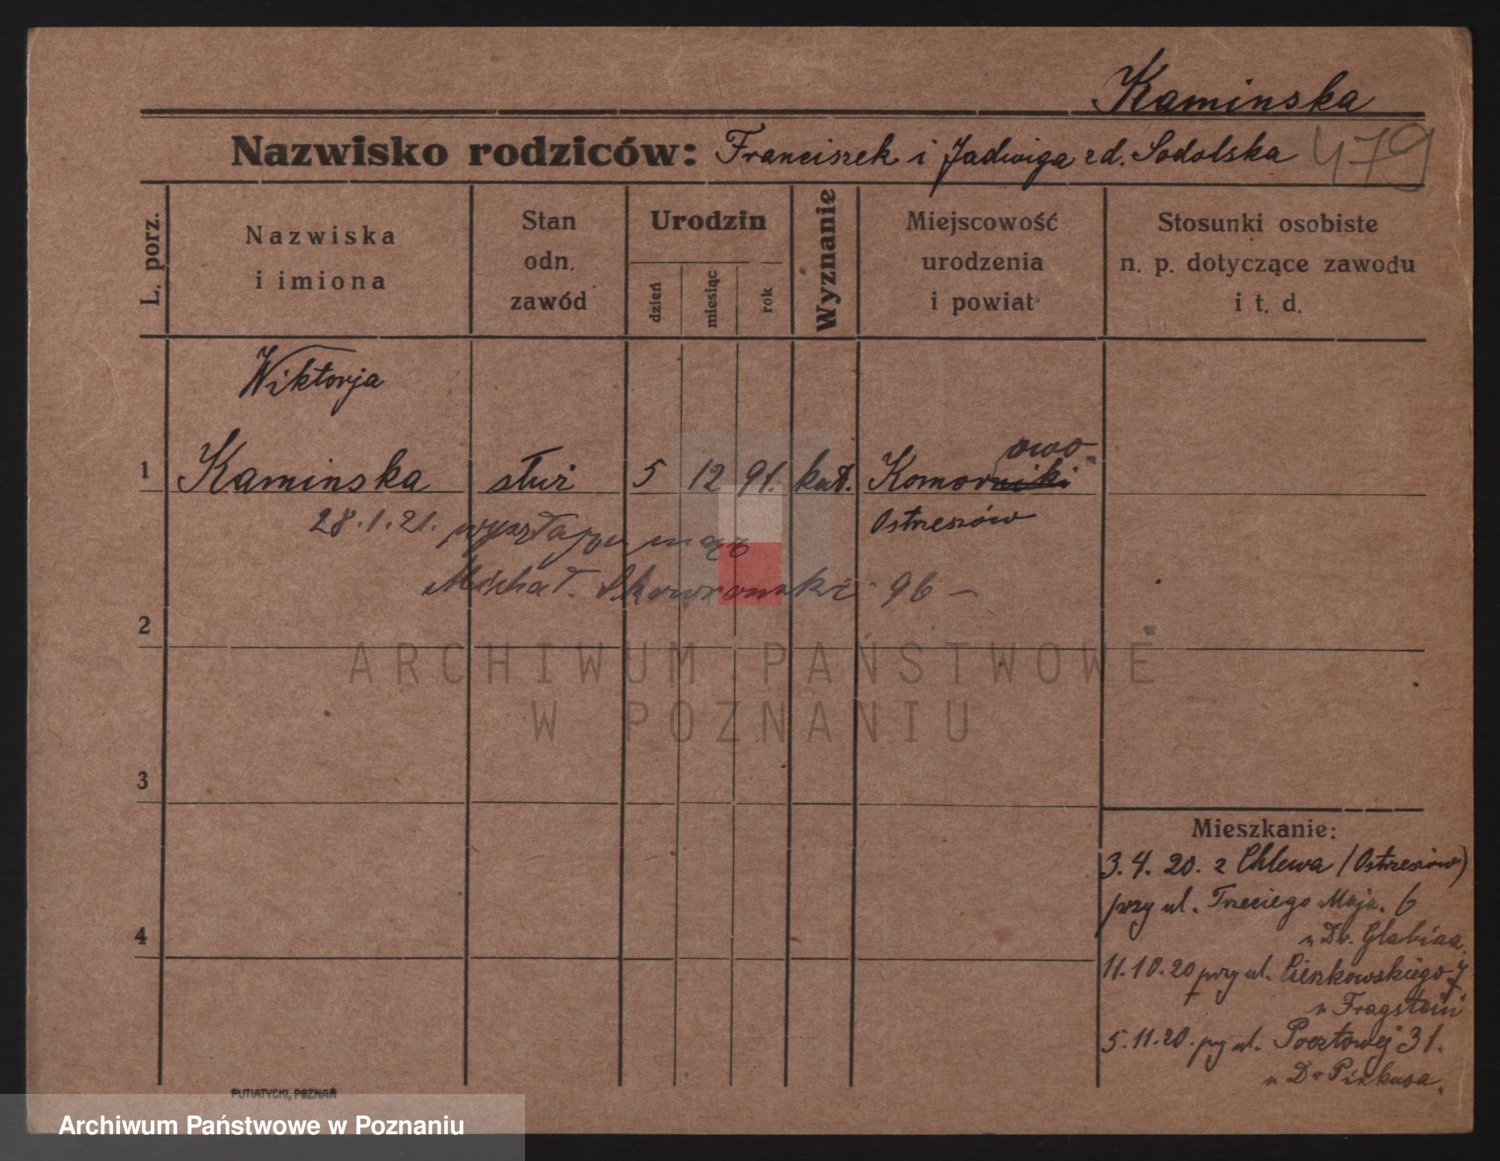 Kaminska
Nazwisko rodziców: Franciszek i Jadwiga zd. Sodolska 479
L. porz.
Nazwiska
i imiona
Stan
odn.
zawód
Urodzin
dzień
miesiąc
rok
Wyznanie
Miejscowość
urodzenia
i powiat
Stosunki osobiste
n. p. dotyczące zawodu
i t. d.
Wiktorja
owo
1 Kaminska służ 5 12 91. kat. Komorniki
28.1.21. wyszła za mąż Ostrzeszów
Michał Skowronski 96 –
2
ARCHIWUM PAŃSTWOWE
W POZNANIU
3
4
Mieszkanie:
3.4.20. z Chlewa (Ostrzeszów)
przy ul. Trzeciego Maja. 6
u Dr. Glabisza.
11.10.20 przy ul. Pienkowskiego 7
u Fragstein
5.11.20. przy ul. Pocztowej 31.
u Dr Pinkusa.
PUTIATYCKI, POZNAŃ
Archiwum Państwowe w Poznaniu